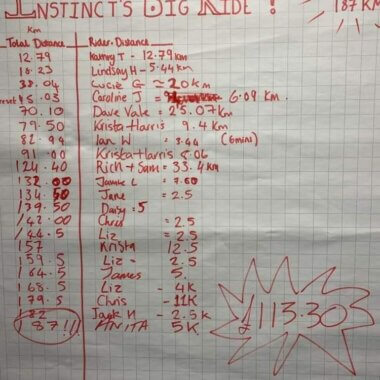 INSTINCT'S BIG RIDE!
187 KM
Km
Total Distance Rider. Distance
12.79 Kathry T - 12.79 km
18.23 Lindsay H - 5.44 km
38.04 Lucie G ≈ 20km
reset 45.03 Caroline J = 6.09 km.
70.10 Dave Vale = 25.07km
79.50 Krista Harris 9.4 km
82.94 Ian W = 3.44 (6mini)
91.00 Krista Harris 8.06
124.40 Rich + Sam = 33.4 km
132.00 Jamie L = 7.60
134.50 Jane = 2.5
139.50 Daisy = 5
142.00 Chris = 2.5
144.5 Liz = 2.5
157 Krista 12.5
159.5 Liz - 2.5
164.5 James 5.
168.5 Liz - 4K
179.5 Chris - 11K
182 Jack H - 2.5K
187!!! ANITA 5K
£113.30